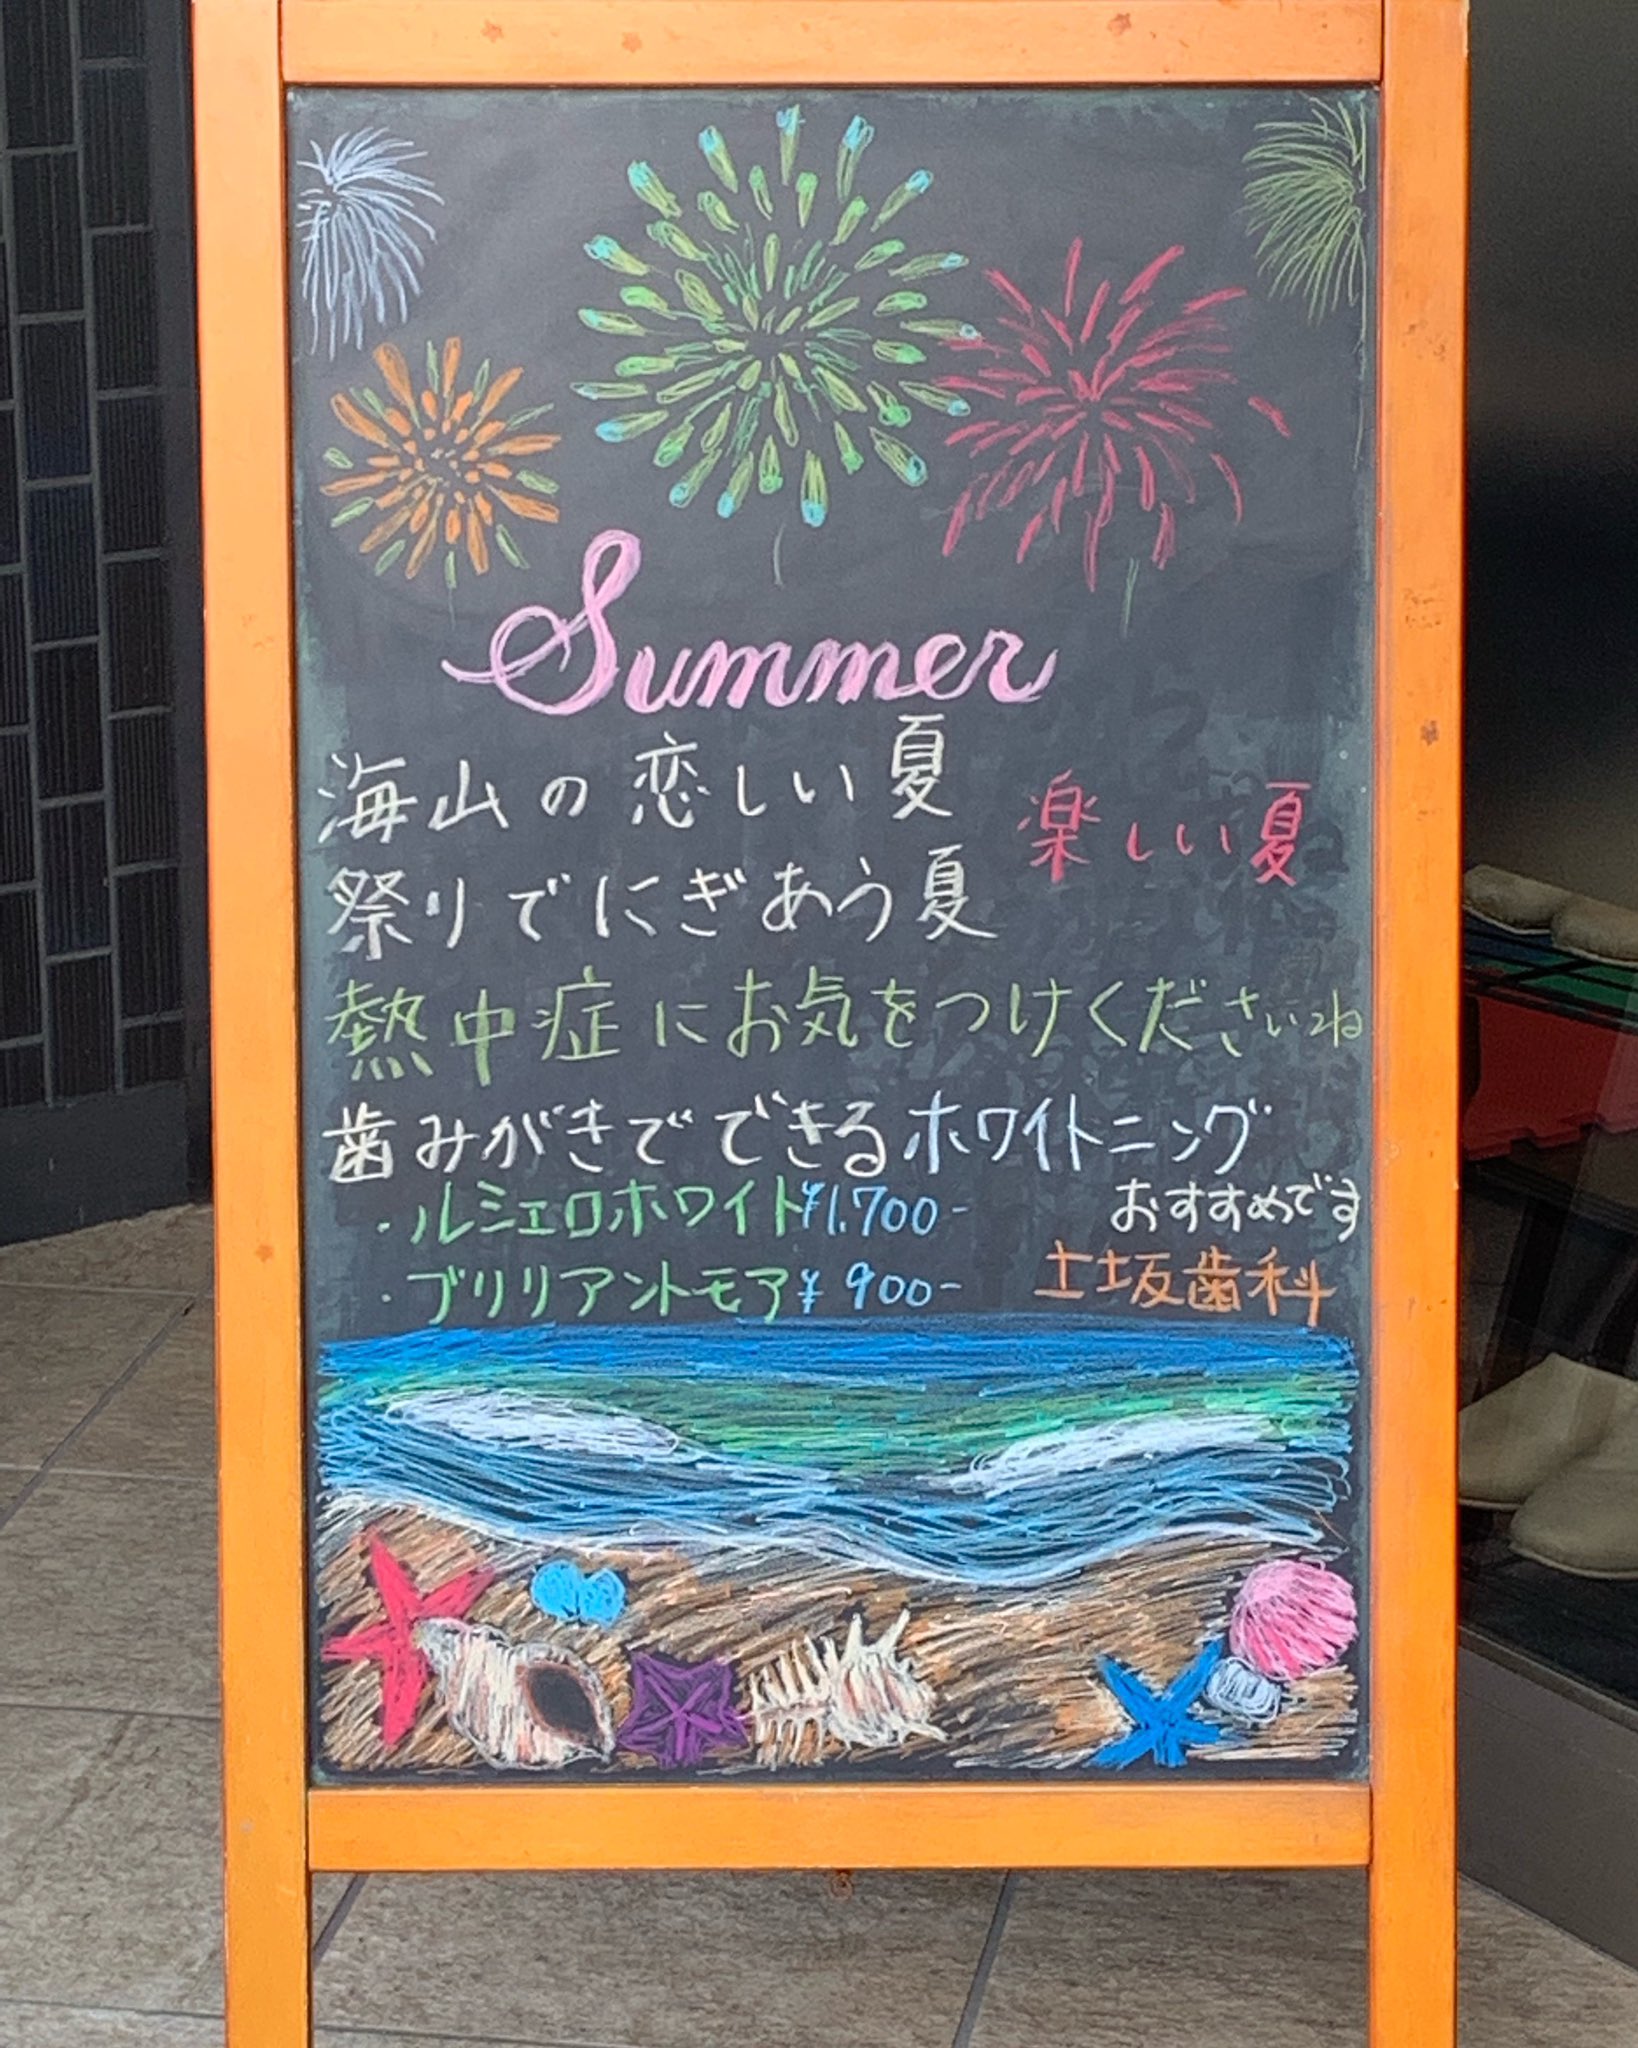 Summer
海山の恋しい夏
楽しい夏
祭りでにぎあう夏
熱中症にお気をつけくださいね
歯みがきでできるホワイトニング
・ルミェロホワイト¥1,700-
おすすめです
・ブリリアントモア¥900-
土坂歯科